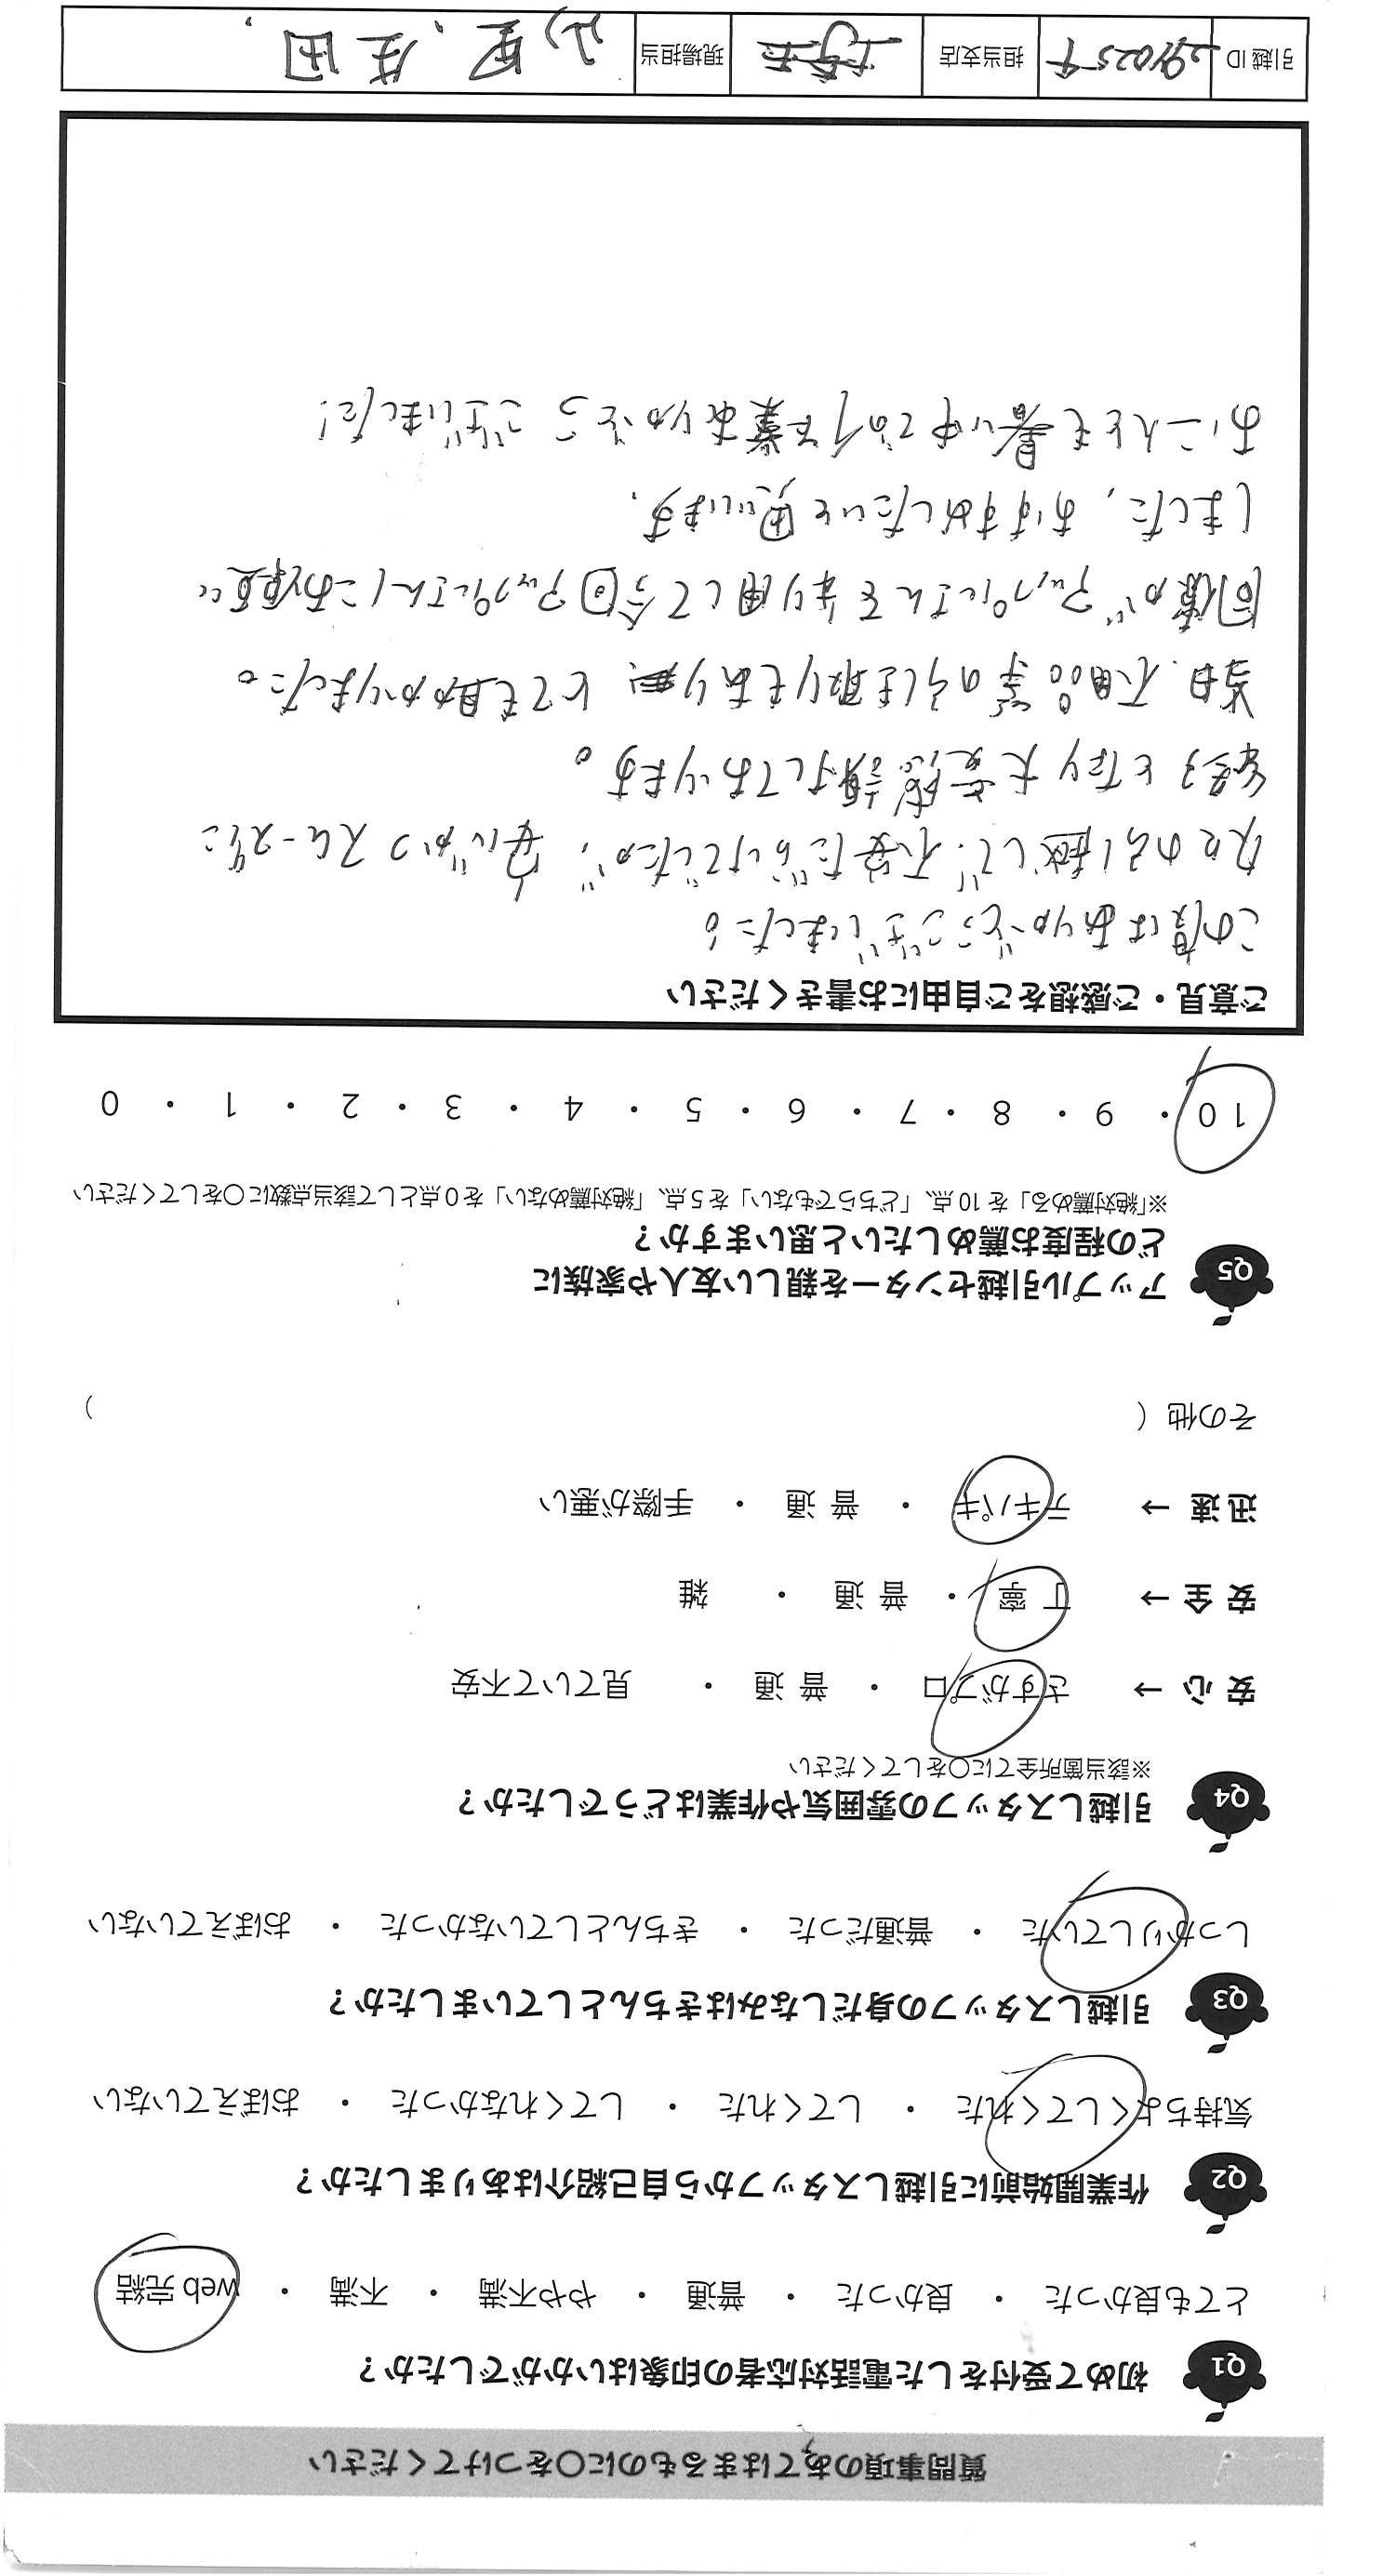 質問事項のあてはまるものに〇をつけてください
Q1 初めて受付をした電話対応者の印象はいかがでしたか？
とても良かった ・ 良かった ・ 普通 ・ やや不満 ・ 不満 ・ web 完結
Q2 作業開始前に引越しスタッフから自己紹介はありましたか？
気持ちよくしてくれた ・ してくれた ・ してくれなかった ・ おぼえていない
Q3 引越しスタッフの身だしなみはきちんとしていましたか？
しっかりしていた ・ 普通だった ・ きちんとしていなかった ・ おぼえていない
Q4 引越しスタッフの雰囲気や作業はどうでしたか？
※該当箇所全てに〇をしてください
安 心 → さすがプロ ・ 普 通 ・ 見ていて不安
安 全 → 丁 寧 ・ 普 通 ・ 雑
迅 速 → テキパキ ・ 普 通 ・ 手際が悪い
その他（ ）
Q5 アップル引越センターを親しい友人や家族に
どの程度お薦めしたいと思いますか？
※「絶対薦める」を 10 点、「どちらでもない」を 5 点、「絶対薦めない」を 0 点として該当点数に〇をしてください
10 ・ 9 ・ 8 ・ 7 ・ 6 ・ 5 ・ 4 ・ 3 ・ 2 ・ 1 ・ 0
ご意見・ご感想をご自由にお書きください
この度はありがとうございました。
久々の引越しで不安だらけでしたが、安心かつスムーズに
完了となり大変感謝しております。
当日、不用品等の引き取りもあり、とても助かりました。
同僚がアップルさんを利用して今回アップルさんにお願い
しました、おすすめしたいと思います。
お二人とも暑い中での作業ありがとうございました！
引越 ID 291025 担当支店 現場担当 山里、生田